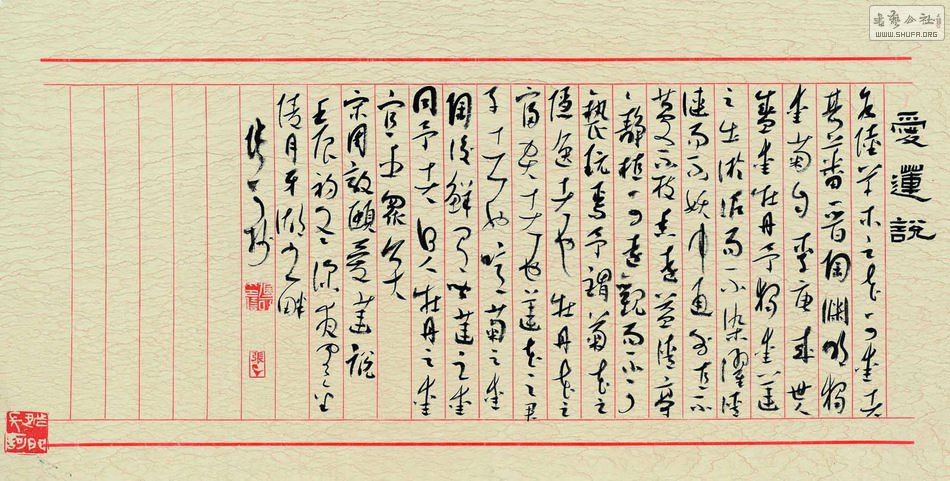 愛蓮說
水陸草木之花可愛者
甚蕃晉陶淵明獨
愛菊自李唐來世人
盛愛牡丹予獨愛蓮
之出淤泥而不染濯清
漣而不妖中通外直不
蔓不枝香遠益清亭
亭靜植可遠觀而不可
褻玩焉予謂菊花之
隱逸者也牡丹花之
富貴者也蓮花之君
子者也噫菊之愛
陶後鮮有聞蓮之愛
同予者何人牡丹之愛
宜乎眾矣
宋周敦頤愛蓮說
壬辰初夏深夜
清月平湖之畔
張
書藝公社
WWW.SHUFA.ORG